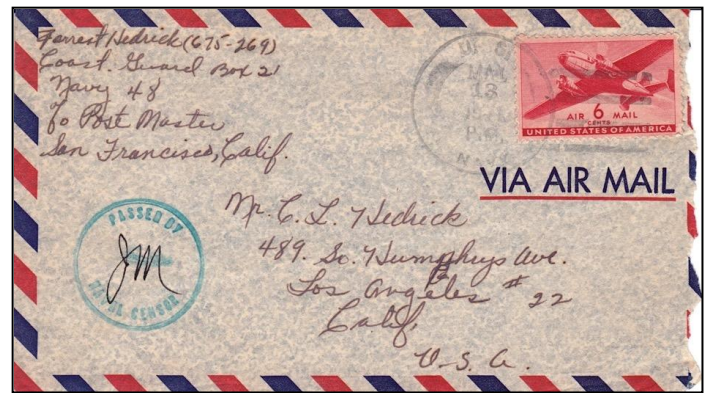 Forrest Hedrick (675-269)
Coast. Guard Box 21
Navy 48
℅ Post Master
San Francisco, Calif.
U. S.
MAR
13
P.M.
AIR 6 MAIL
CENTS
UNITED STATES OF AMERICA
VIA AIR MAIL
PASSED BY
JM
NAVAL CENSOR
Mr. C. L. Hedrick
489. So. Humphrys Ave.
Los Angeles # 22
Calif.
U.S.A.